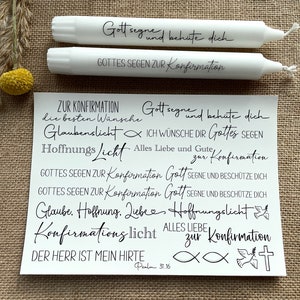 Gott segne und behüte dich
GOTTES SEGEN ZUR Konfirmation
ZUR KONFIRMATION
die besten Wünsche
Gott segne und behüte dich
Glaubenslicht
ICH WÜNSCHE DIR Gottes SEGEN
Hoffnungs Licht
Alles Liebe und Gute
zur Konfirmation
GOTTES SEGEN ZUR Konfirmation Gott SEGNE UND BESCHÜTZE DICH
GOTTES SEGEN ZUR Konfirmation Gott SEGNE UND BESCHÜTZE DICH
Glaube, Hoffnung, Liebe Hoffnungslicht
Konfirmationslicht
ALLES LIEBE zur Konfirmation
DER HERR IST MEIN HIRTE